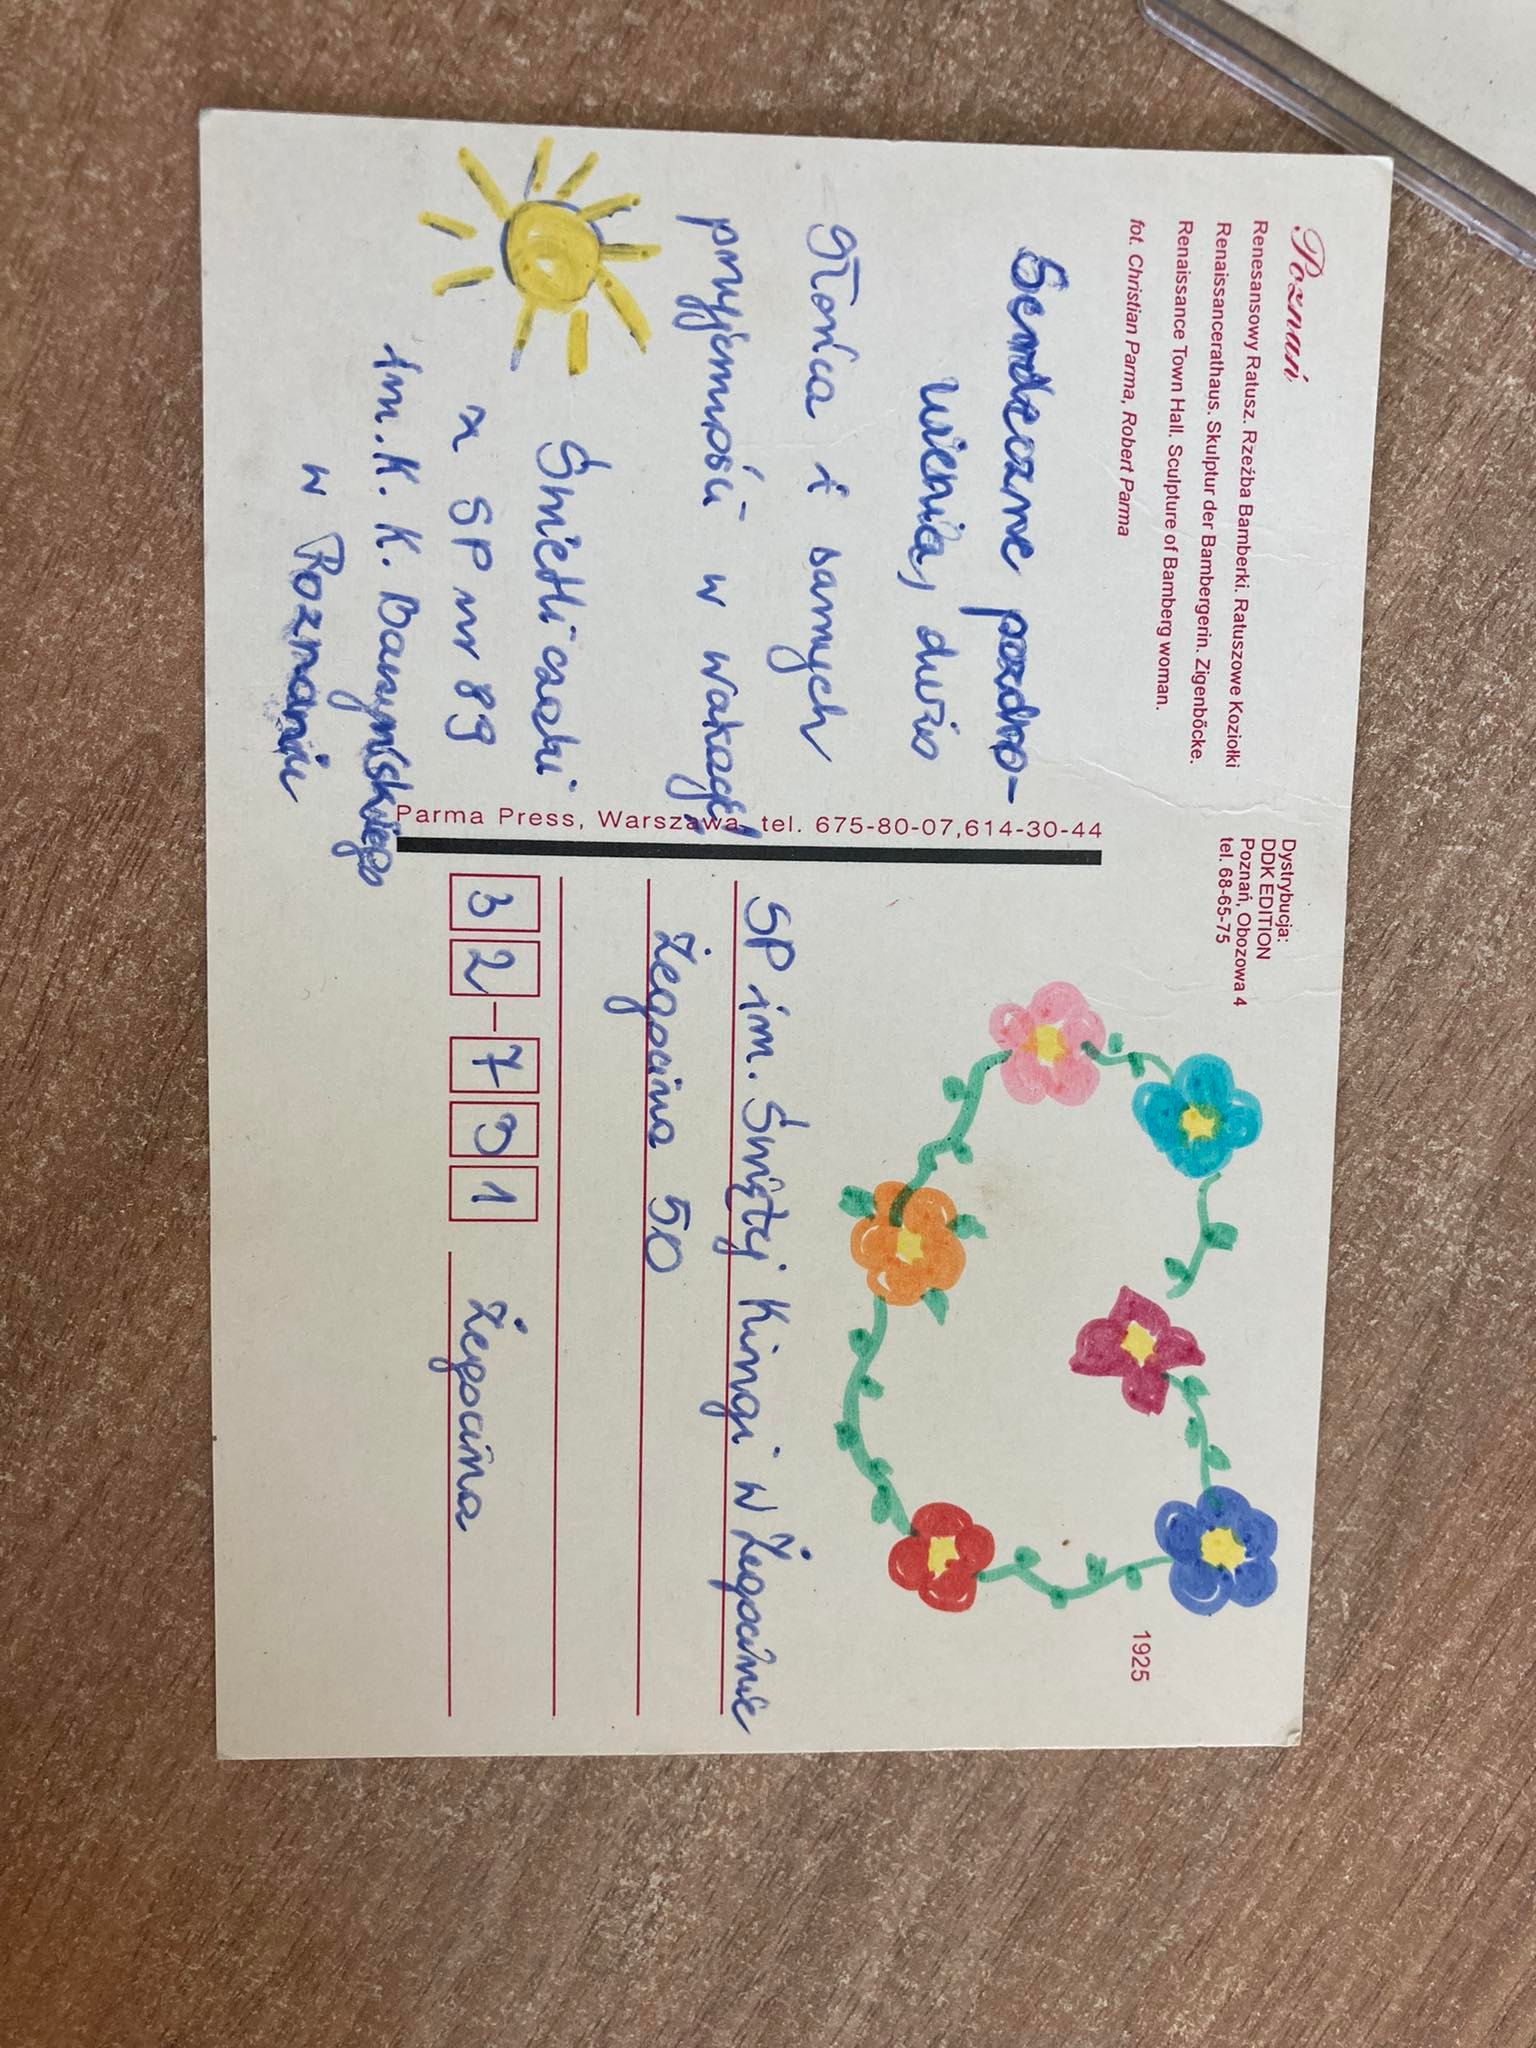 Poznań
Renesansowy Ratusz. Rzeźba Bamberki. Ratuszowe Koziołki
Renaissancerathaus. Skulptur der Bambergerin. Zigenböcke.
Renaissance Town Hall. Sculpture of Bamberg woman.
fot. Christian Parma, Robert Parma
Serdeczne pozdro-
wienia, dużo
słońca i samych
przyjemność w wakacje!
Świetliczaki
z SP nr 89
im. K. K. Baczyńskiego
w Poznaniu
Parma Press, Warszawa, tel. 675-80-07,614-30-44
Dystrybucja:
DDK EDITION
Poznań, Obozowa 4
tel. 68-65-75
1925
SP im. Świętej Kingi w Żegocinie
Żegocina 50
32-791 Żegocina